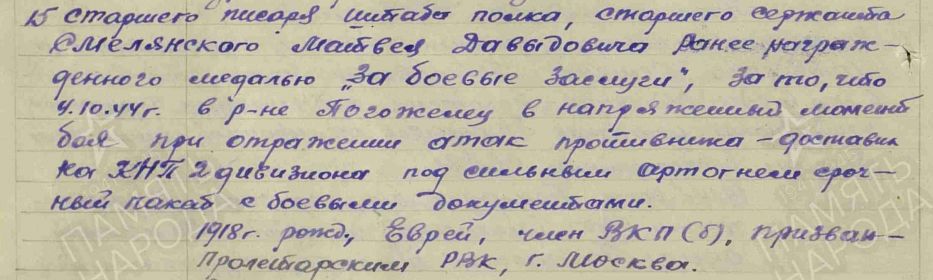 15 старшего писаря штаба полка, старшего сержанта
Смелянского Матвея Давыдовича ранее награж-
денного медалью „За боевые заслуги", за то, что
4.10.44г. в р-не Погожелец в напряженный момент
боя при отражении атак противника – доставил
на КНП 2 дивизиона под сильным артогнем сроч-
ный пакет с боевыми документами.
1918г. рожд., Еврей, член ВКП(б), призван –
Пролетарским РВК, г. Москва.
ПАМЯТЬ НАРОДА
ПАМЯТЬ НАРОДА